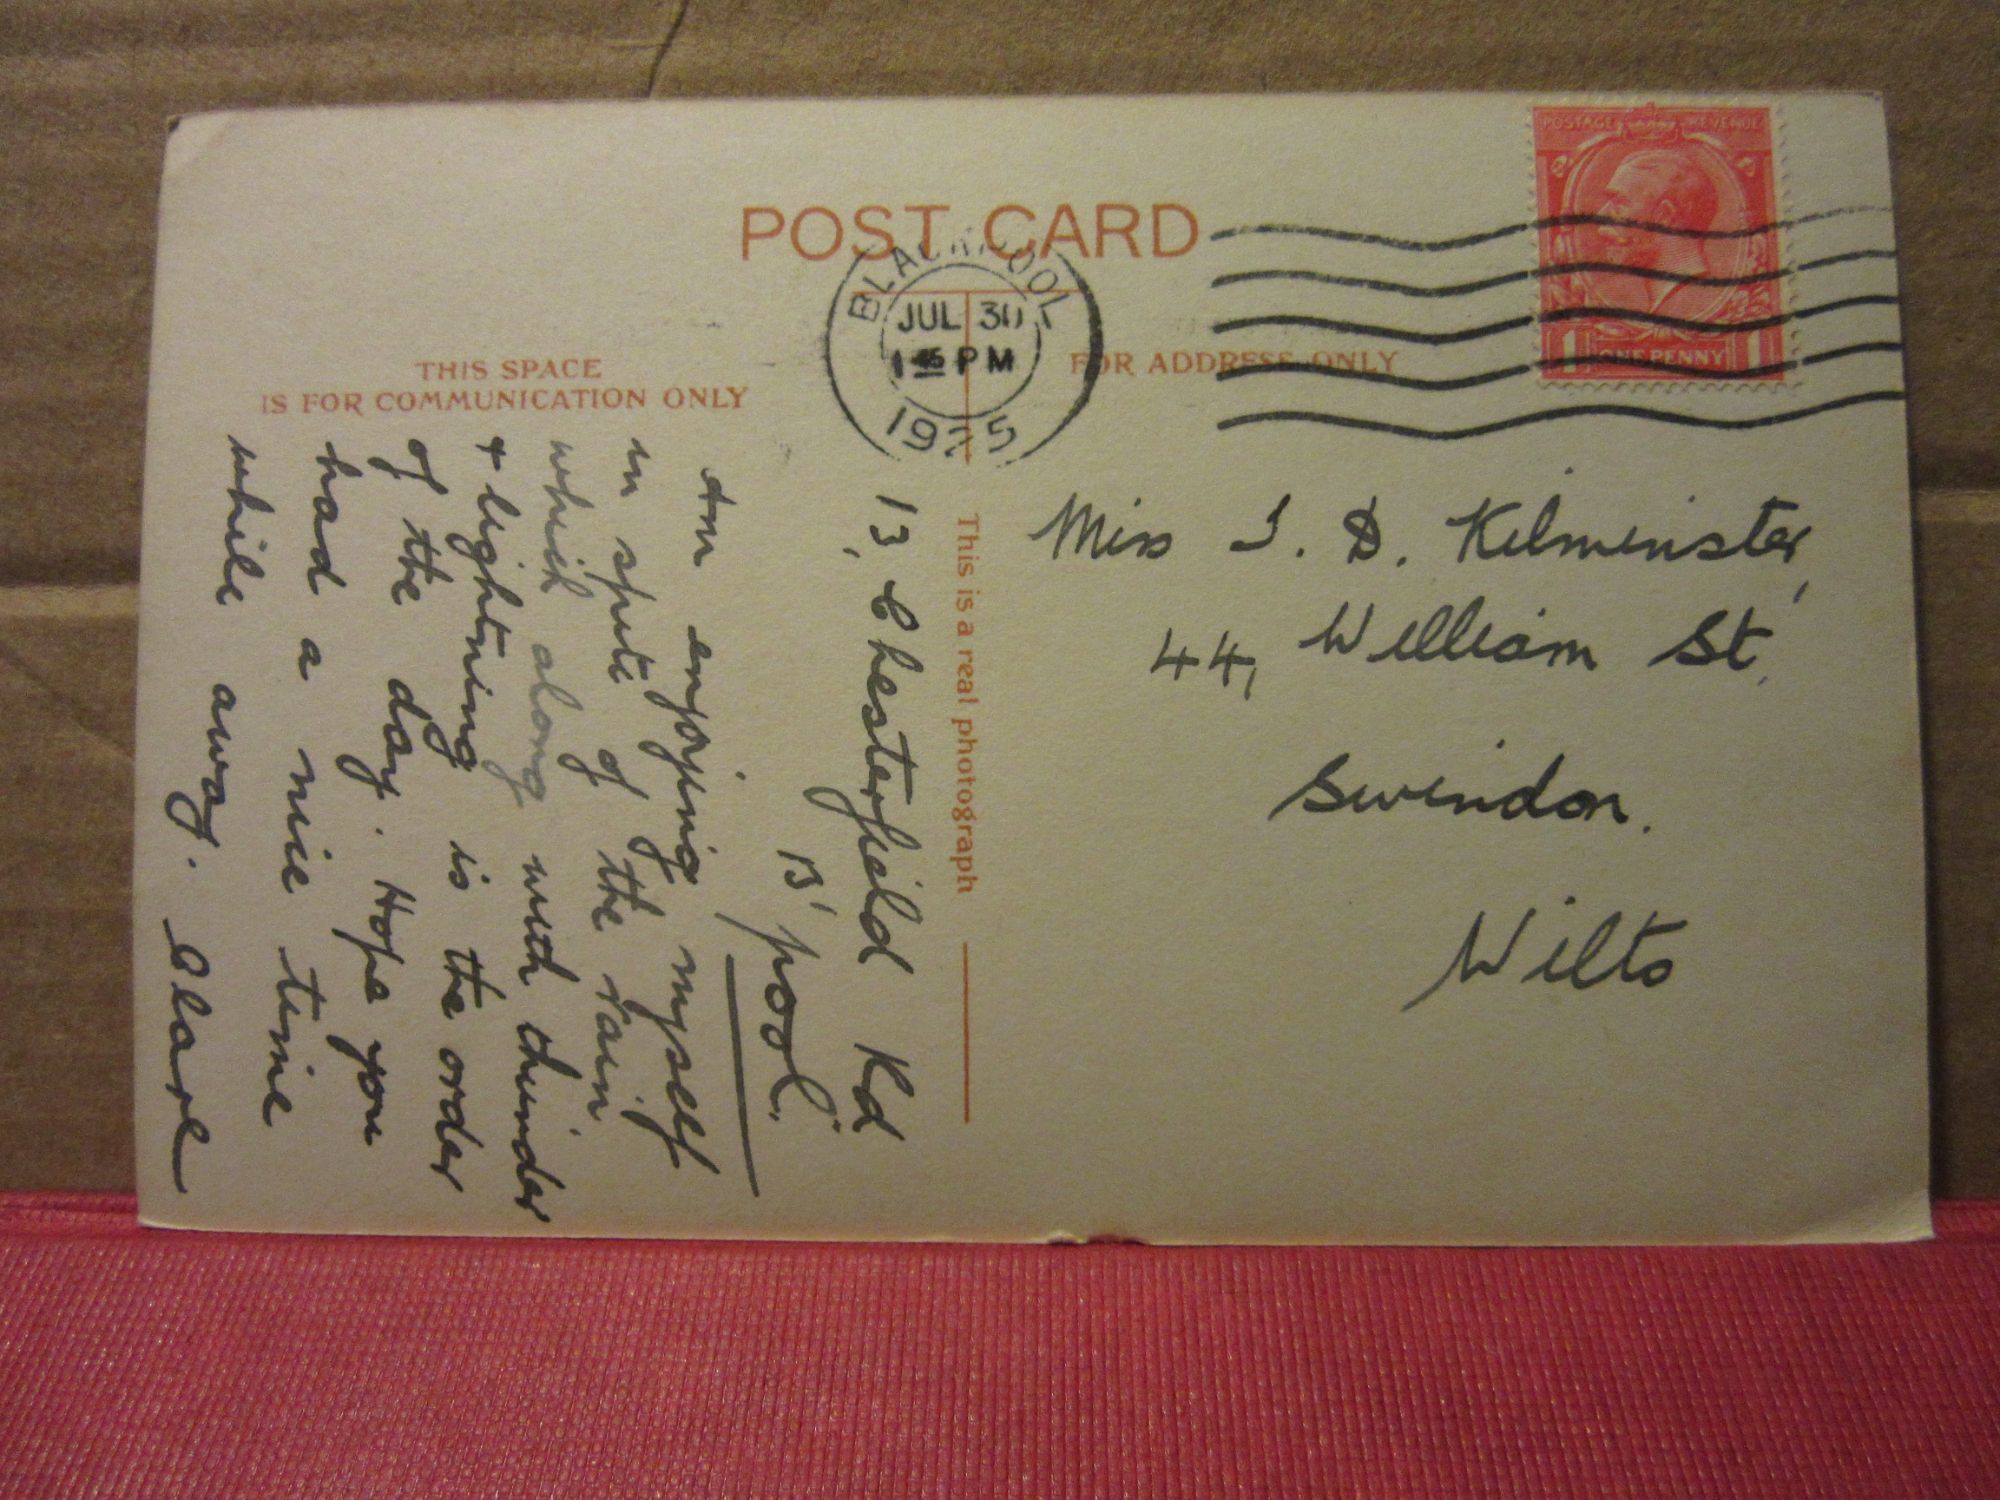 POST CARD
THIS SPACE
IS FOR COMMUNICATION ONLY
FOR ADDRESS ONLY
BLACKPOOL
JUL 30
1 45 PM
1925
POSTAGE REVENUE
1 ONE PENNY 1
This is a real photograph
13, Chesterfield Rd
B'pool.
Am enjoying myself
in spite of the rain,
which along with thunder
+ lightning is the order
of the day. Hope you
had a nice time
while away. Clare
Miss I. D. Kilminster,
44, William St,
Swindon.
Wilts